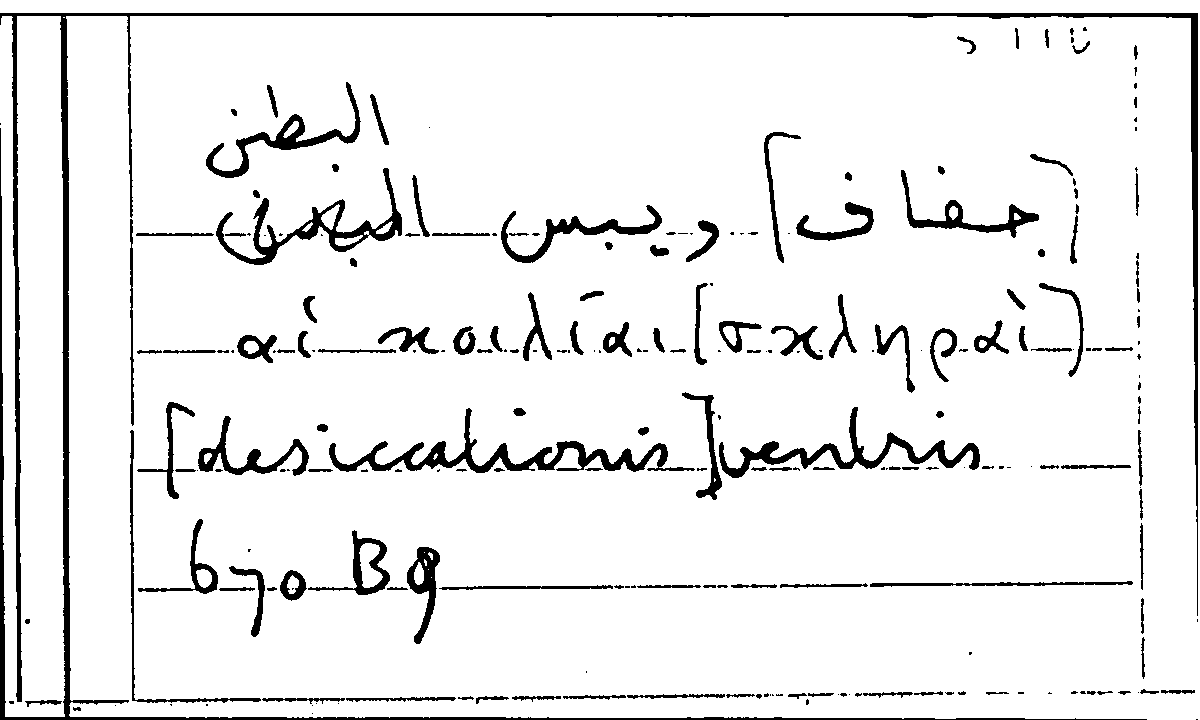 البطن
(جفاف] ويبس البطن
αἱ κοιλίαι [σκληραὶ)
[desiccationis] ventris
670 B9